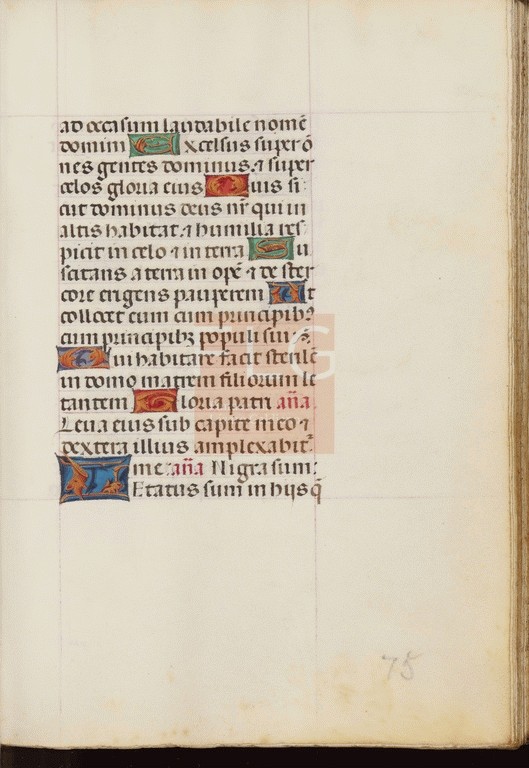 ad occasum laudabile nomē
domini Excelsus super ō
nes gentes dominus. ⁊ super
celos gloria eius Quis si
cut dominus deus nr̄ qui in
altis habitat ⁊ humilia res
picit in celo ⁊ in terra Su
scitans a terra in opē ⁊ de ster
core erigens pauperem Ut
collocet eum cum principibꝰ
cum principibꝫ populi sui
Qui habitare facit sterilē
in domo matrem filiorum le
tantem Gloria patri an̄a.
Leua eius sub capite meo ⁊
dextera illius amplexabit᷑
me: an̄a Nigra sum:
Letatus sum in hijs q̄
TLG
75